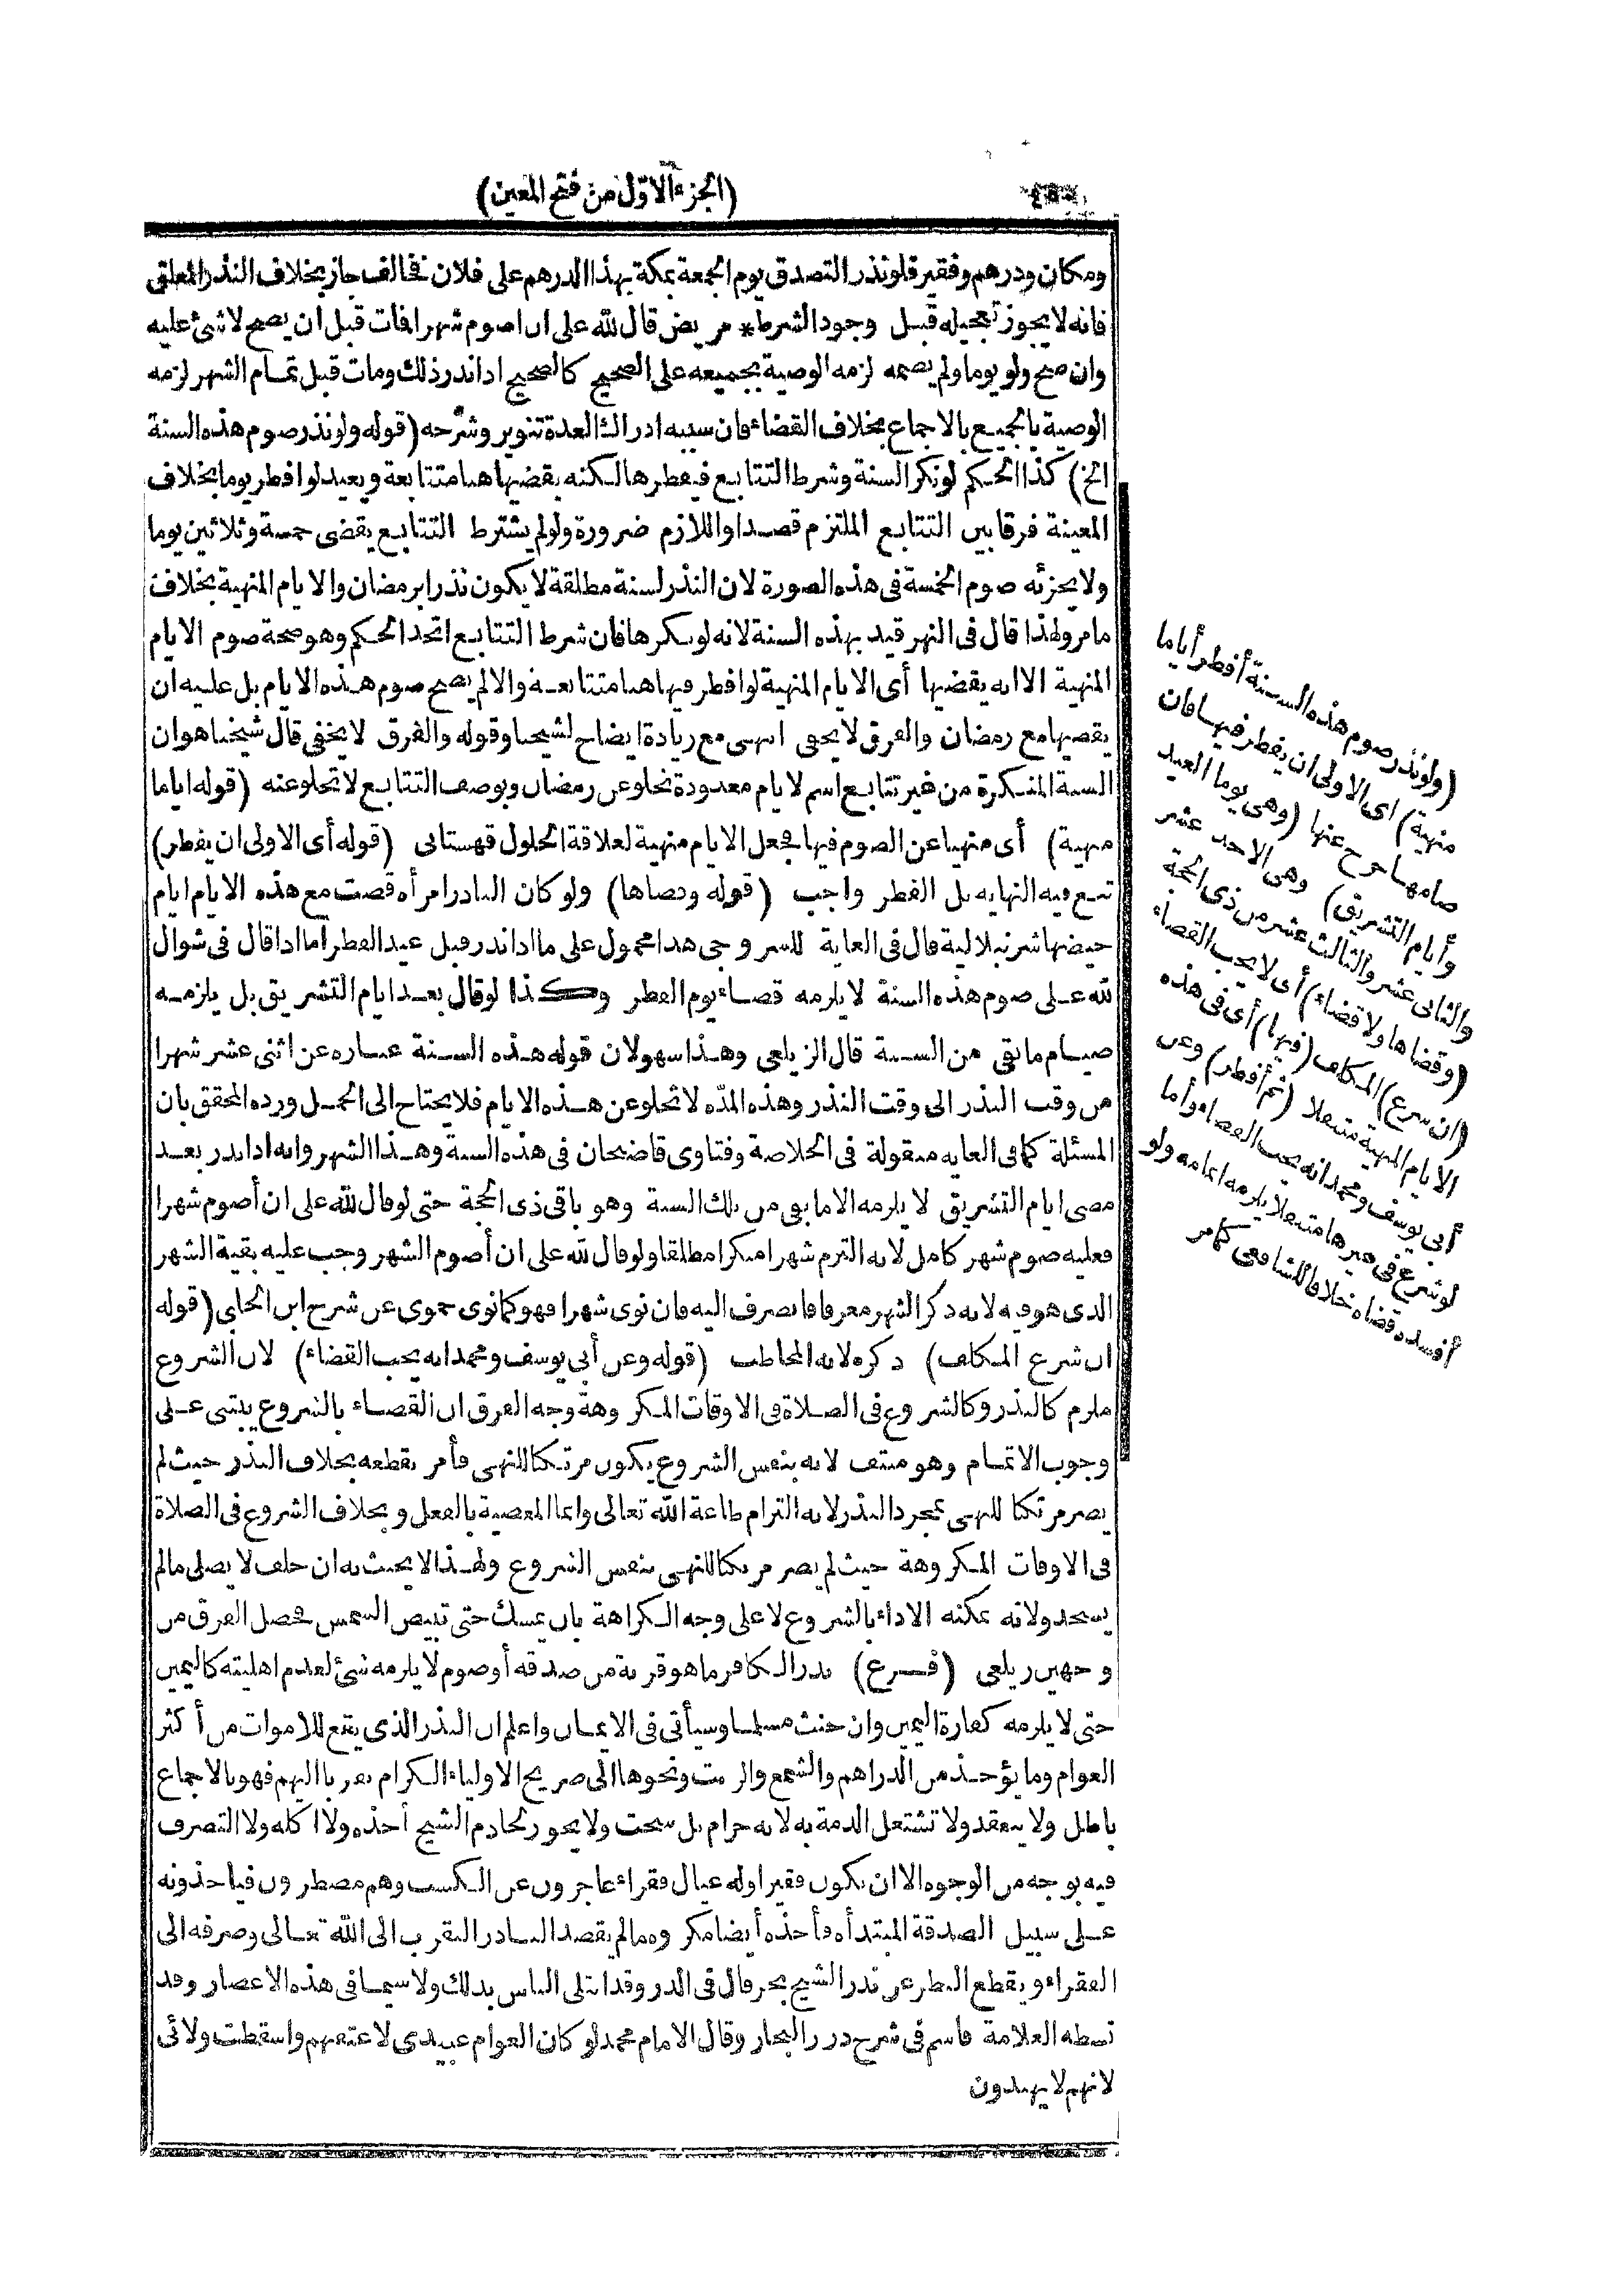 (الجزء الاوّل من فتح المعين)
ومكان ودرهم وفقير فلونذر التصدق يوم الجمعة بمكة بهذا الدرهم على فلان فخالف جاز بخلاف النذر المعلق
فانه لايجوز تعجيله قبل وجود الشرط * مريض قال لله على ان اصوم شهرا فات قبل ان يصح لاشئ عليه
وان صح ولو يوما ولم يصمه لزمه الوصية بجميعه على الصحيح كالصحيح اذا نذر ذلك ومات قبل تمام الشهر لزمه
الوصية بالجميع بالاجماع بخلاف القضاء فان سببه ادراك العدة تنوير وشرحه (قوله ولو نذر صوم هذه السنة
الخ) كذا الحكم لو نكر السنة وشرط التتابع فيفطرها لكنه يقضيها هنا متتابعة ويعيد لو افطر يوما بخلاف
المعينة فرقا بين التتابع الملتزم قصدا واللازم ضرورة ولو لم يشترط التتابع يقضى خمسة وثلاثين يوما
ولا يجزئه صوم الخمسة فى هذه الصورة لان النذر لسنة مطلقة لا يكون نذرا برمضان والايام المنهية بخلاف
مامر ولهذا قال فى النهر قيد بهذه السنة لانه لو نكرها فان شرط التتابع اتحد الحكم وهو صحة صوم الايام
المنهية الا انه يقضيها أى الايام المنهية لو افطر فيها هنا متتابعة والالم يصح صوم هذه الايام بل عليه ان
يقضيها مع رمضان والفرق لايخفى انتهى مع زيادة ايضاح لشيخنا وقوله والفرق لايخفى قال شيخنا هو ان
السنة المنكرة من غير تتابع اسم لايام معدودة تخلو عن رمضان وبوصف التتابع لا تخلو عنه (قوله اياما
منهية) أى منهيا عن الصوم فيها فجعل الايام منهية لعلاقة الحلول قهستانى (قوله أى الاولى ان يفطر)
تبع فيه النهاية بل الفطر واجب (قوله وقضاها) ولو كان الناذر امرأة قضت مع هذه الايام ايام
حيضها شرنبلالية قال فى الغاية للسروجى هذا محمول على ما اذا نذر قبل عيد الفطر اما اذا قال فى شوال
لله على صوم هذه السنة لا يلزمه قضاء يوم الفطر وكذا لو قال بعد ايام التشريق بل يلزمه
صيام مابقى من السنة قال الزيلعى وهذا سهو لان قوله هذه السنة عبارة عن اثنى عشر شهرا
من وقت النذر الى وقت النذر وهذه المدّة لا تخلو عن هذه الايام فلا يحتاج الى الحمل ورده المحقق بان
المسئلة كما فى الغاية منقولة فى الخلاصة وفتاوى قاضيخان فى هذه السنة وهذا الشهر وانه اذا نذر بعد
مضى ايام التشريق لا يلزمه الا مابقى من تلك السنة وهو باقى ذى الحجة حتى لو قال لله على ان أصوم شهرا
فعليه صوم شهر كامل لانه التزم شهرا منكرا مطلقا ولو قال لله على ان أصوم الشهر وجب عليه بقية الشهر
الذى هو فيه لانه ذكر الشهر معرفا فانصرف اليه فان نوى شهرا فهو كما نوى حموى عن شرح ابن الحلبى (قوله
ان شرع المكلف) ذكره لانه المخاطب (قوله وعن أبى يوسف ومحمد انه يجب القضاء) لان الشروع
ملزم كالنذر وكالشروع فى الصلاة فى الاوقات المكروهة وجه الفرق ان القضاء بالشروع يبتنى على
وجوب الاتمام وهو منتف لانه بنفس الشروع يكون مرتكبا للنهى فأمر بقطعه بخلاف النذر حيث لم
يصر مرتكبا للنهى بمجرد النذر لانه التزام طاعة الله تعالى وانما المعصية بالفعل وبخلاف الشروع فى الصلاة
فى الاوقات المكروهة حيث لم يصر مرتكبا للنهى بنفس الشروع ولهذا لا يحنث به ان حلف لا يصلى مالم
يسجد ولانه يمكنه الاداء بالشروع لا على وجه الكراهة بان يمسك حتى تبيض الشمس فحصل الفرق من
وجهين زيلعى (فرع) نذر الكافر ما هو قربة من صدقة أو صوم لا يلزمه شئ لعدم اهليته كاليمين
حتى لا يلزمه كفارة اليمين وان حنث مسلما وسيأتى فى الايمان واعلم ان النذر الذى يقع للاموات من أكثر
العوام وما يؤخذ من الدراهم والشمع والزيت ونحوها الى ضريح الاولياء الكرام تقربا اليهم فهو بالاجماع
باطل ولا ينعقد ولا تشتغل الذمة به لانه حرام بل سحت ولا يجوز لخادم الشيخ أخذه ولا اكله ولا التصرف
فيه بوجه من الوجوه الا ان يكون فقيرا وله عيال فقراء عاجزون عن الكسب وهم مضطرون فيأخذونه
على سبيل الصدقة المبتدأة فأخذه أيضا مكروه مالم يقصد الناذر التقرب الى الله تعالى وصرفه الى
الفقراء ويقطع النظر عن نذر الشيخ بحر قال فى الدر وقد ابتلى الناس بذلك ولا سيما فى هذه الاعصار وقد
بسطه العلامة قاسم فى شرح درر البحار وقال الامام محمد لو كان العوام عبيدى لاعتقتهم واسقطت ولائى
لانهم لا يهتدون
(ولو نذر صوم هذه السنة أفطر أياما
منهية) اى الاولى ان يفطر فيها فان
صامها خرج عنها (وهى يوما العيد
وأيام التشريق) وهى الاحد عشر
والثانى عشر والثالث عشر من ذى الحجة
(وقضاها ولا قضاء) أى لا يجب القضاء
(ان شرع) المكلف (فيها) أى فى هذه
الايام المنهية متنفلا (ثم أفطر) وعن
أبى يوسف ومحمد انه يجب القضاء وأما
لو شرع فى غيرها متنفلا يلزمه اتمامه ولو
أفسده قضاه خلافا للشافعى كمامر